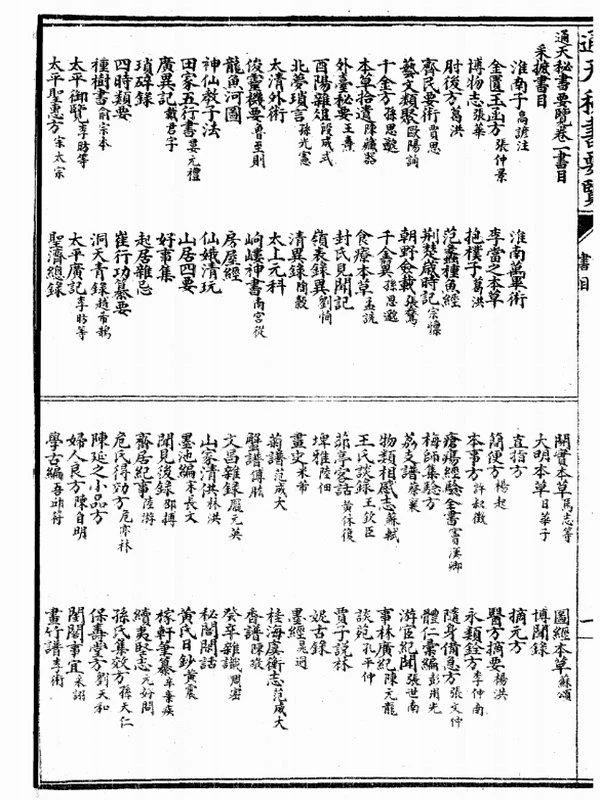 通天秘書要覽
書目
通天秘書要覽卷一書目
采摭書目
淮南子 高誘注 淮南萬畢術
金匱玉函方 張仲景 李當之本草
博物志 張華 抱樸子 葛洪
肘後方 葛洪 范蠡種魚經
齊民要術 賈思 荆楚歲時記 宗懍
藝文類聚 歐陽詢 朝野僉載 張鷟
千金方 孫思邈 千金翼 孫思邈
本草拾遺 陳藏器 食療本草 孟詵
外臺秘要 王燾 封氏見聞記
酉陽雜俎 段成式 嶺表錄異 劉恂
北夢瑣言 孫光憲 清異錄 陶穀
太清外術 太上元科
俊靈機要 魯至剛 岣嶁神書 南宮從
龍魚河圖 房屋經
神仙教子法 仙娥清玩
田家五行書 婁元禮 山居四要
廣異記 戴君孚 好事集
瑣碎錄 起居雜忌
四時類要 崔行功纂要
種樹書 俞宗本 洞天青錄 趙希鵠
太平御覽 李昉等 太平廣記 李昉等
太平聖惠方 宋太宗 聖濟總錄
一
開寶本草 馬志等 圖經本草 蘇頌
大明本草 日華子 博聞錄
直指方 摘元方
簡便方 楊起 醫方摘要 楊洪
本事方 許叔微 永類鈐方 李仲南
瘡瘍經驗全書 竇漢卿 隨身備急方 張文仲
梅師集驗方 體仁彙編 彭用光
荔支譜 蔡襄 游宦紀聞 張世南
物類相感志 蘇軾 事林廣記 陳元龍
王氏談錄 王欽臣 談苑 孔平仲
菲亭客話 黃休復 賈子說林
埤雅 陸佃 妮古錄
畫史 米芾 墨經 晁迥
菊譜 范成大 桂海虞衡志 范成大
蟹譜 傅肱 香譜 陳敬
文昌雜錄 龐元英 癸辛雜識 周密
山家清供 林洪 秘閣閒話
墨池編 朱長文 黃氏日鈔 黃震
聞見後錄 邵博 稼軒筆纂 辛棄疾
齋居紀事 陸游 續夷堅志 元好問
危氏得効方 危亦林 孫氏集效方 孫天仁
陳延之小品方 保壽堂方 劉天和
婦人良方 陳自明 閨閣事宜 朱詡
學古編 吾邱衍 畫竹譜 李衎